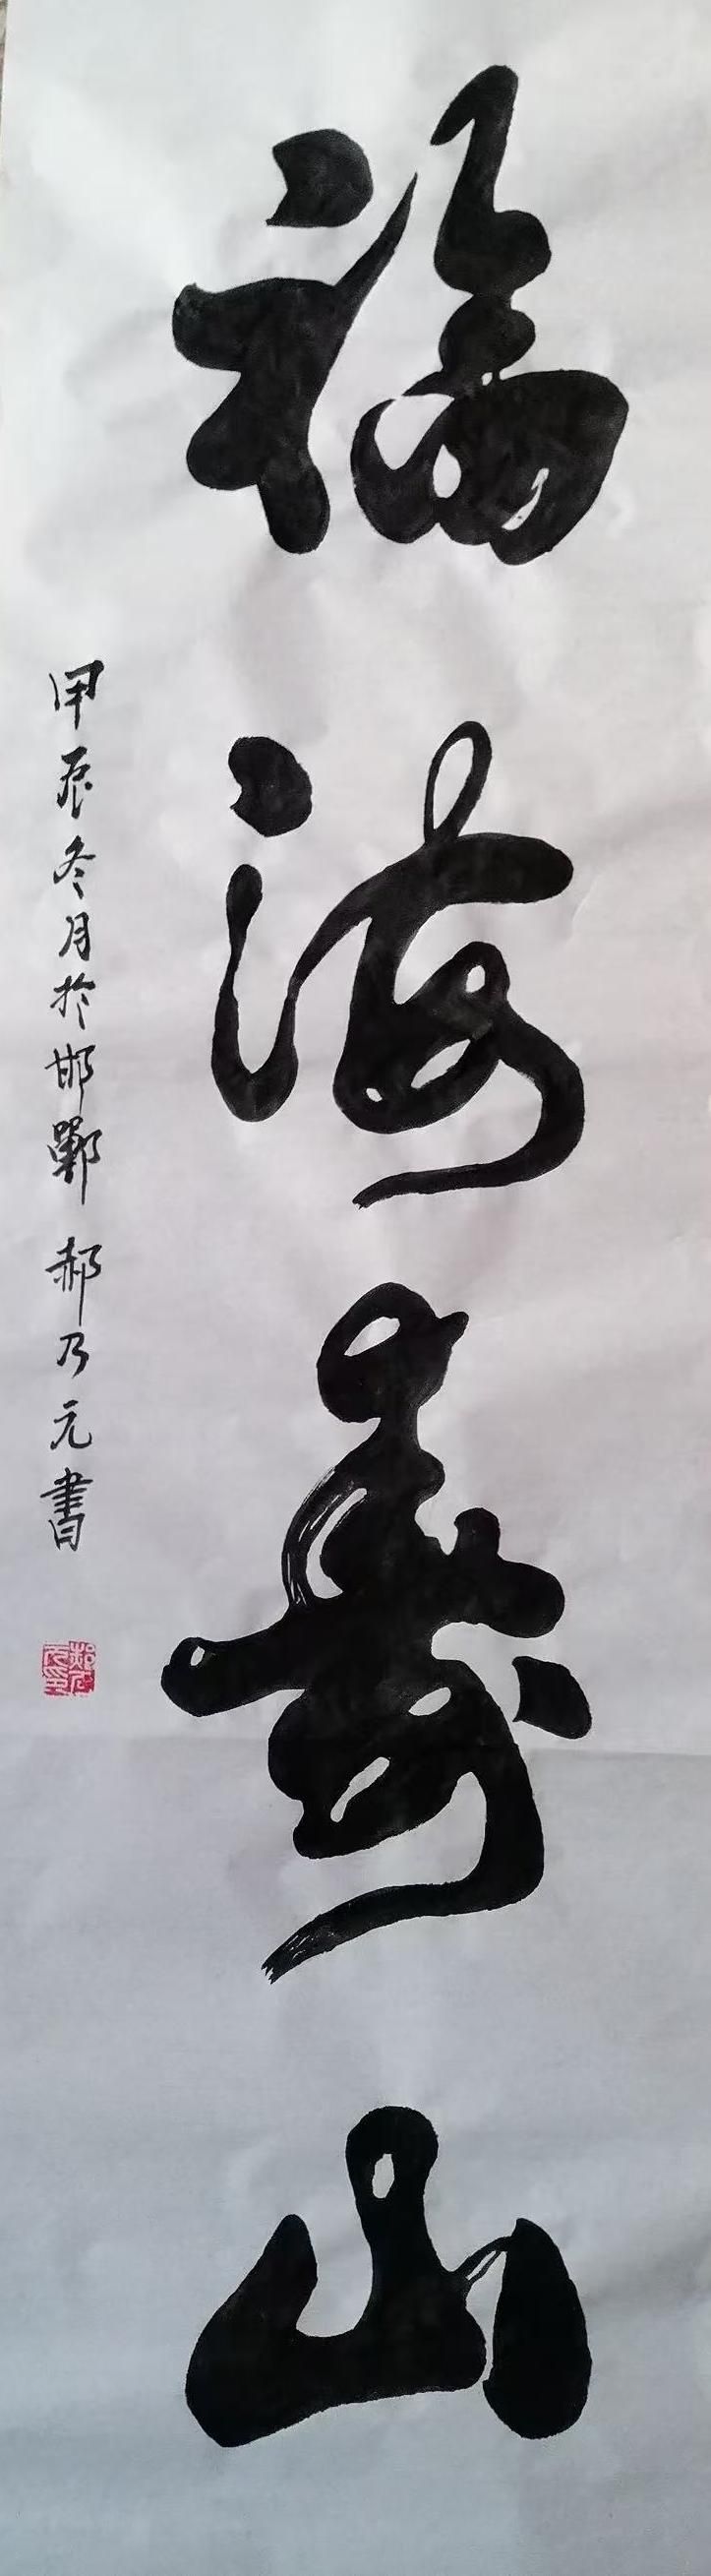 福海寿山
甲辰冬月於邯鄲 郝乃元書